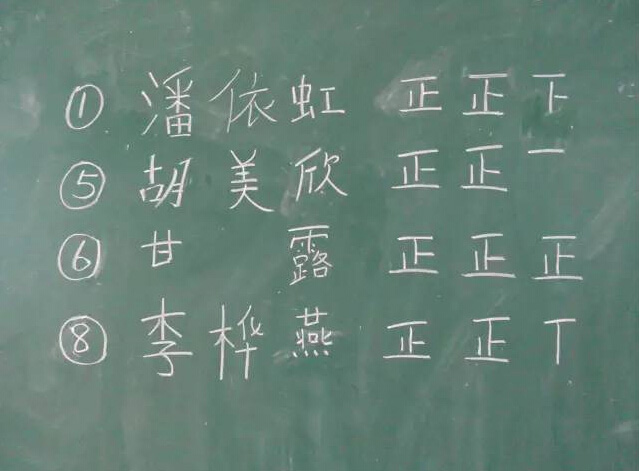 ① 潘依虹 正正下
⑤ 胡美欣 正正一
⑥ 甘露 正正正
⑧ 李桦燕 正正丅